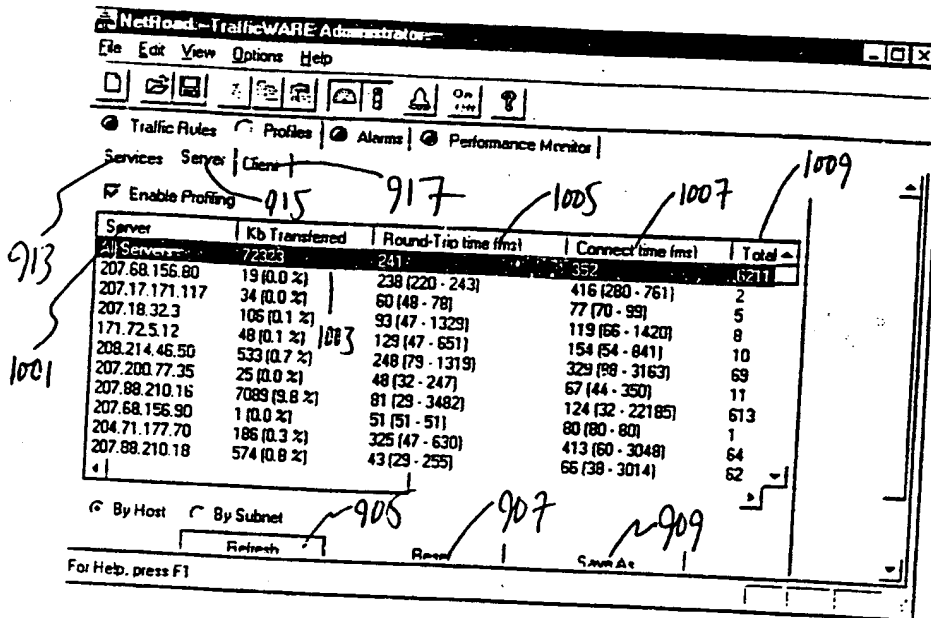 NetRoad - TrafficWARE Administrator
File Edit View Options Help
Traffic Rules Profiles Alarms Performance Monitor
Services Server Client
1009
Enable Profiling
915 917 1005 1007
913
Server Kb Transferred Round-Trip time (ms) Connect time (ms) Total
All Servers 72323 241 352 6211
207.68.156.80 19 (0.0 %) 238 (220 - 243) 416 (280 - 761) 2
207.17.171.117 34 (0.0 %) 60 (48 - 78) 77 (70 - 99) 5
207.18.32.3 106 (0.1 %) 93 (47 - 1329) 119 (66 - 1420) 8
171.72.5.12 48 (0.1 %) 129 (47 - 651) 154 (54 - 841) 10
1003
1001
208.214.46.50 533 (0.7 %) 248 (79 - 1319) 329 (98 - 3163) 69
207.200.77.35 25 (0.0 %) 48 (32 - 247) 67 (44 - 350) 11
207.88.210.16 7089 (9.8 %) 81 (29 - 3482) 124 (32 - 22185) 613
207.68.156.90 1 (0.0 %) 51 (51 - 51) 80 (80 - 80) 1
204.71.177.70 186 (0.3 %) 325 (47 - 630) 413 (60 - 3048) 64
207.88.210.18 574 (0.8 %) 43 (29 - 255) 66 (38 - 3014) 62
By Host By Subnet
905 907 909
Refresh Reset Save As
For Help, press F1